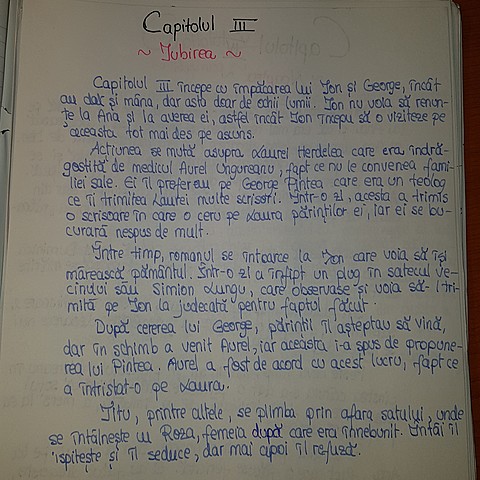 Capitolul III
~ Iubirea ~
Capitolul III începe cu împăcarea lui Ion și George, încât
au dat și mâna, dar asta doar de ochii lumii. Ion nu voia să renun-
țe la Ana și la averea ei, astfel încât Ion începu să o viziteze pe
aceasta tot mai des pe ascuns.
Acțiunea se mută asupra Laurei Herdelea care era îndră-
gostită de medicul Aurel Ungureanu, fapt ce nu le convenea fami-
liei sale. Ei îl preferau pe George Pintea care era un teolog
ce îi trimitea Laurei multe scrisori. Într-o zi, acesta a trimis
o scrisoare în care o cere pe Laura părinților ei, iar ei se bu-
curară nespus de mult.
Între timp, romanul se întoarce la Ion care voia să își
mărească pământul. Într-o zi a înfipt un plug în satecul ve-
cinului său Simion Lungu, care observase și voia să-l tri-
mită pe Ion la judecată pentru faptul făcut.
După cererea lui George, părinții îl așteptau să vină,
dar în schimb a venit Aurel, iar aceasta i-a spus de propune-
rea lui Pintea. Aurel a fost de acord cu acest lucru, fapt ce
a întristat-o pe Laura.
Titu, printre altele, se plimba prin afara satului, unde
se întâlnește cu Roza, femeia după care era înnebunit. Întâi îl
ispitește și îl seduce, dar mai apoi îl refuză.